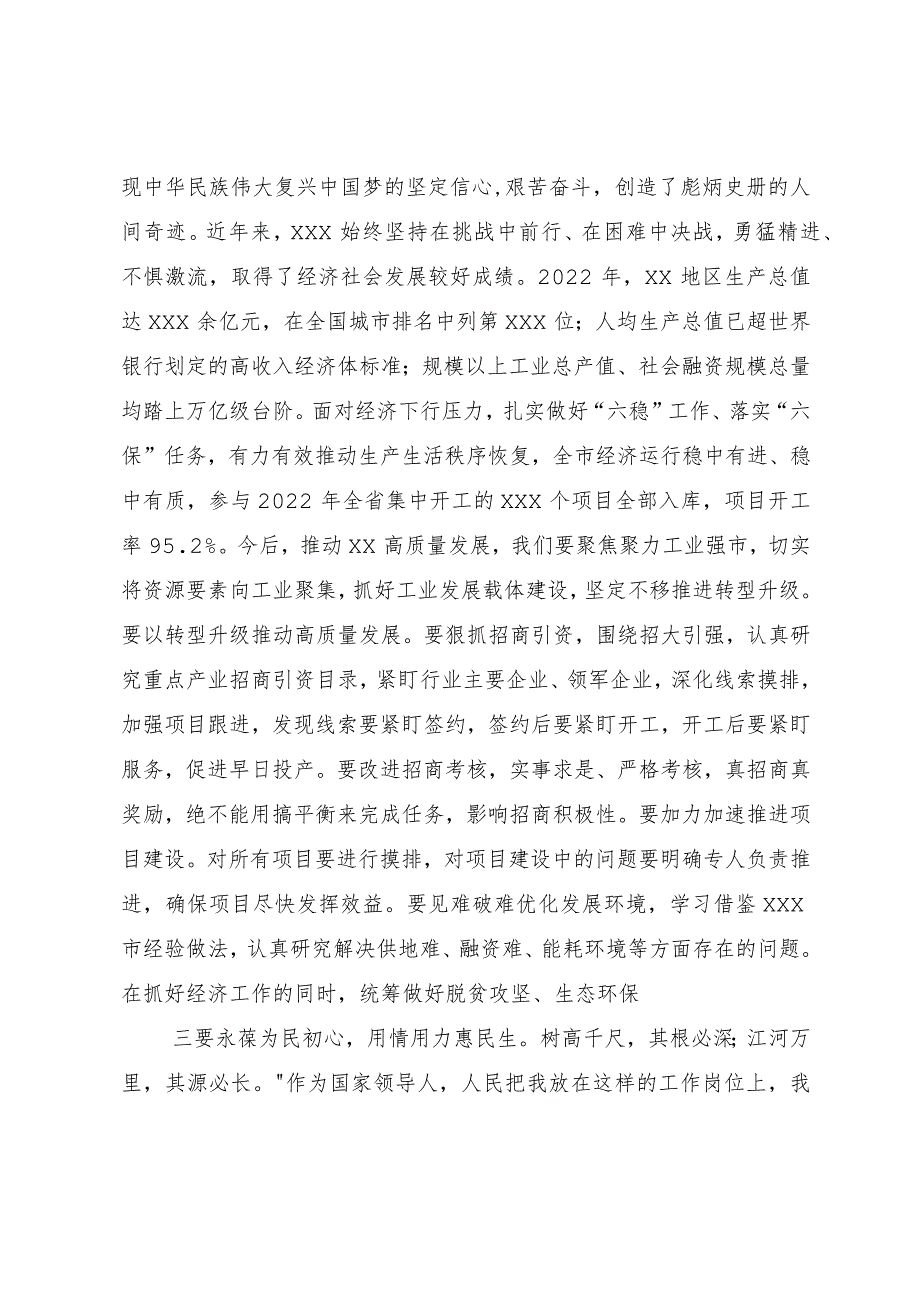 现中华民族伟大复兴中国梦的坚定信心,艰苦奋斗，创造了彪炳史册的人
间奇迹。近年来，XXX 始终坚持在挑战中前行、在困难中决战，勇猛精进、
不惧激流，取得了经济社会发展较好成绩。2022 年，XX 地区生产总值
达 XXX 余亿元，在全国城市排名中列第 XXX 位；人均生产总值已超世界
银行划定的高收入经济体标准；规模以上工业总产值、社会融资规模总量
均踏上万亿级台阶。面对经济下行压力，扎实做好“六稳”工作、落实“六
保”任务，有力有效推动生产生活秩序恢复，全市经济运行稳中有进、稳
中有质，参与 2022 年全省集中开工的 XXX 个项目全部入库，项目开工
率 95.2%。今后，推动 XX 高质量发展，我们要聚焦聚力工业强市，切实
将资源要素向工业聚集，抓好工业发展载体建设，坚定不移推进转型升级。
要以转型升级推动高质量发展。要狠抓招商引资，围绕招大引强，认真研
究重点产业招商引资目录，紧盯行业主要企业、领军企业，深化线索摸排，
加强项目跟进，发现线索要紧盯签约，签约后要紧盯开工，开工后要紧盯
服务，促进早日投产。要改进招商考核，实事求是、严格考核，真招商真
奖励，绝不能用搞平衡来完成任务，影响招商积极性。要加力加速推进项
目建设。对所有项目要进行摸排，对项目建设中的问题要明确专人负责推
进，确保项目尽快发挥效益。要见难破难优化发展环境，学习借鉴 XXX
市经验做法，认真研究解决供地难、融资难、能耗环境等方面存在的问题。
在抓好经济工作的同时，统筹做好脱贫攻坚、生态环保
三要永葆为民初心，用情用力惠民生。树高千尺，其根必深；江河万
里，其源必长。"作为国家领导人，人民把我放在这样的工作岗位上，我